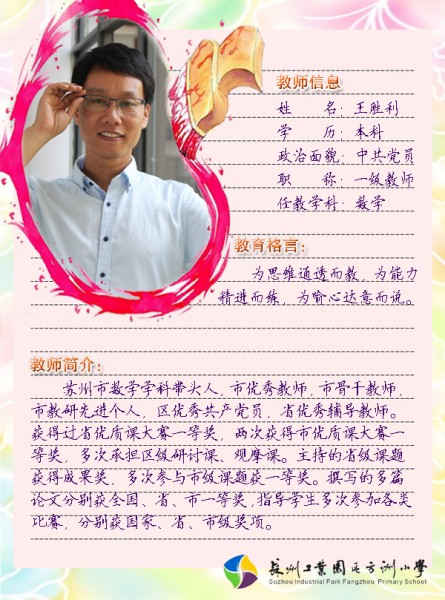 教师信息
姓 名：王胜利
学 历：本科
政治面貌：中共党员
职 称：一级教师
任教学科：数学
教育格言：
为思维通透而教，为能力
精进而练，为愉心达意而说。
教师简介：
苏州市数学学科带头人，市优秀教师，市骨干教师，
市教研先进个人，区优秀共产党员，省优秀辅导教师。
获得过省优质课大赛一等奖，两次获得市优质课大赛一
等奖，多次承担区级研讨课、观摩课。主持的省级课题
获得成果奖，多次参与市级课题获一等奖。撰写的多篇
论文分别获全国、省、市一等奖，指导学生多次参加各类
比赛，分别获国家、省、市级奖项。
苏州工业园区方洲小学
Suzhou Industrial Park Fangzhou Primary School